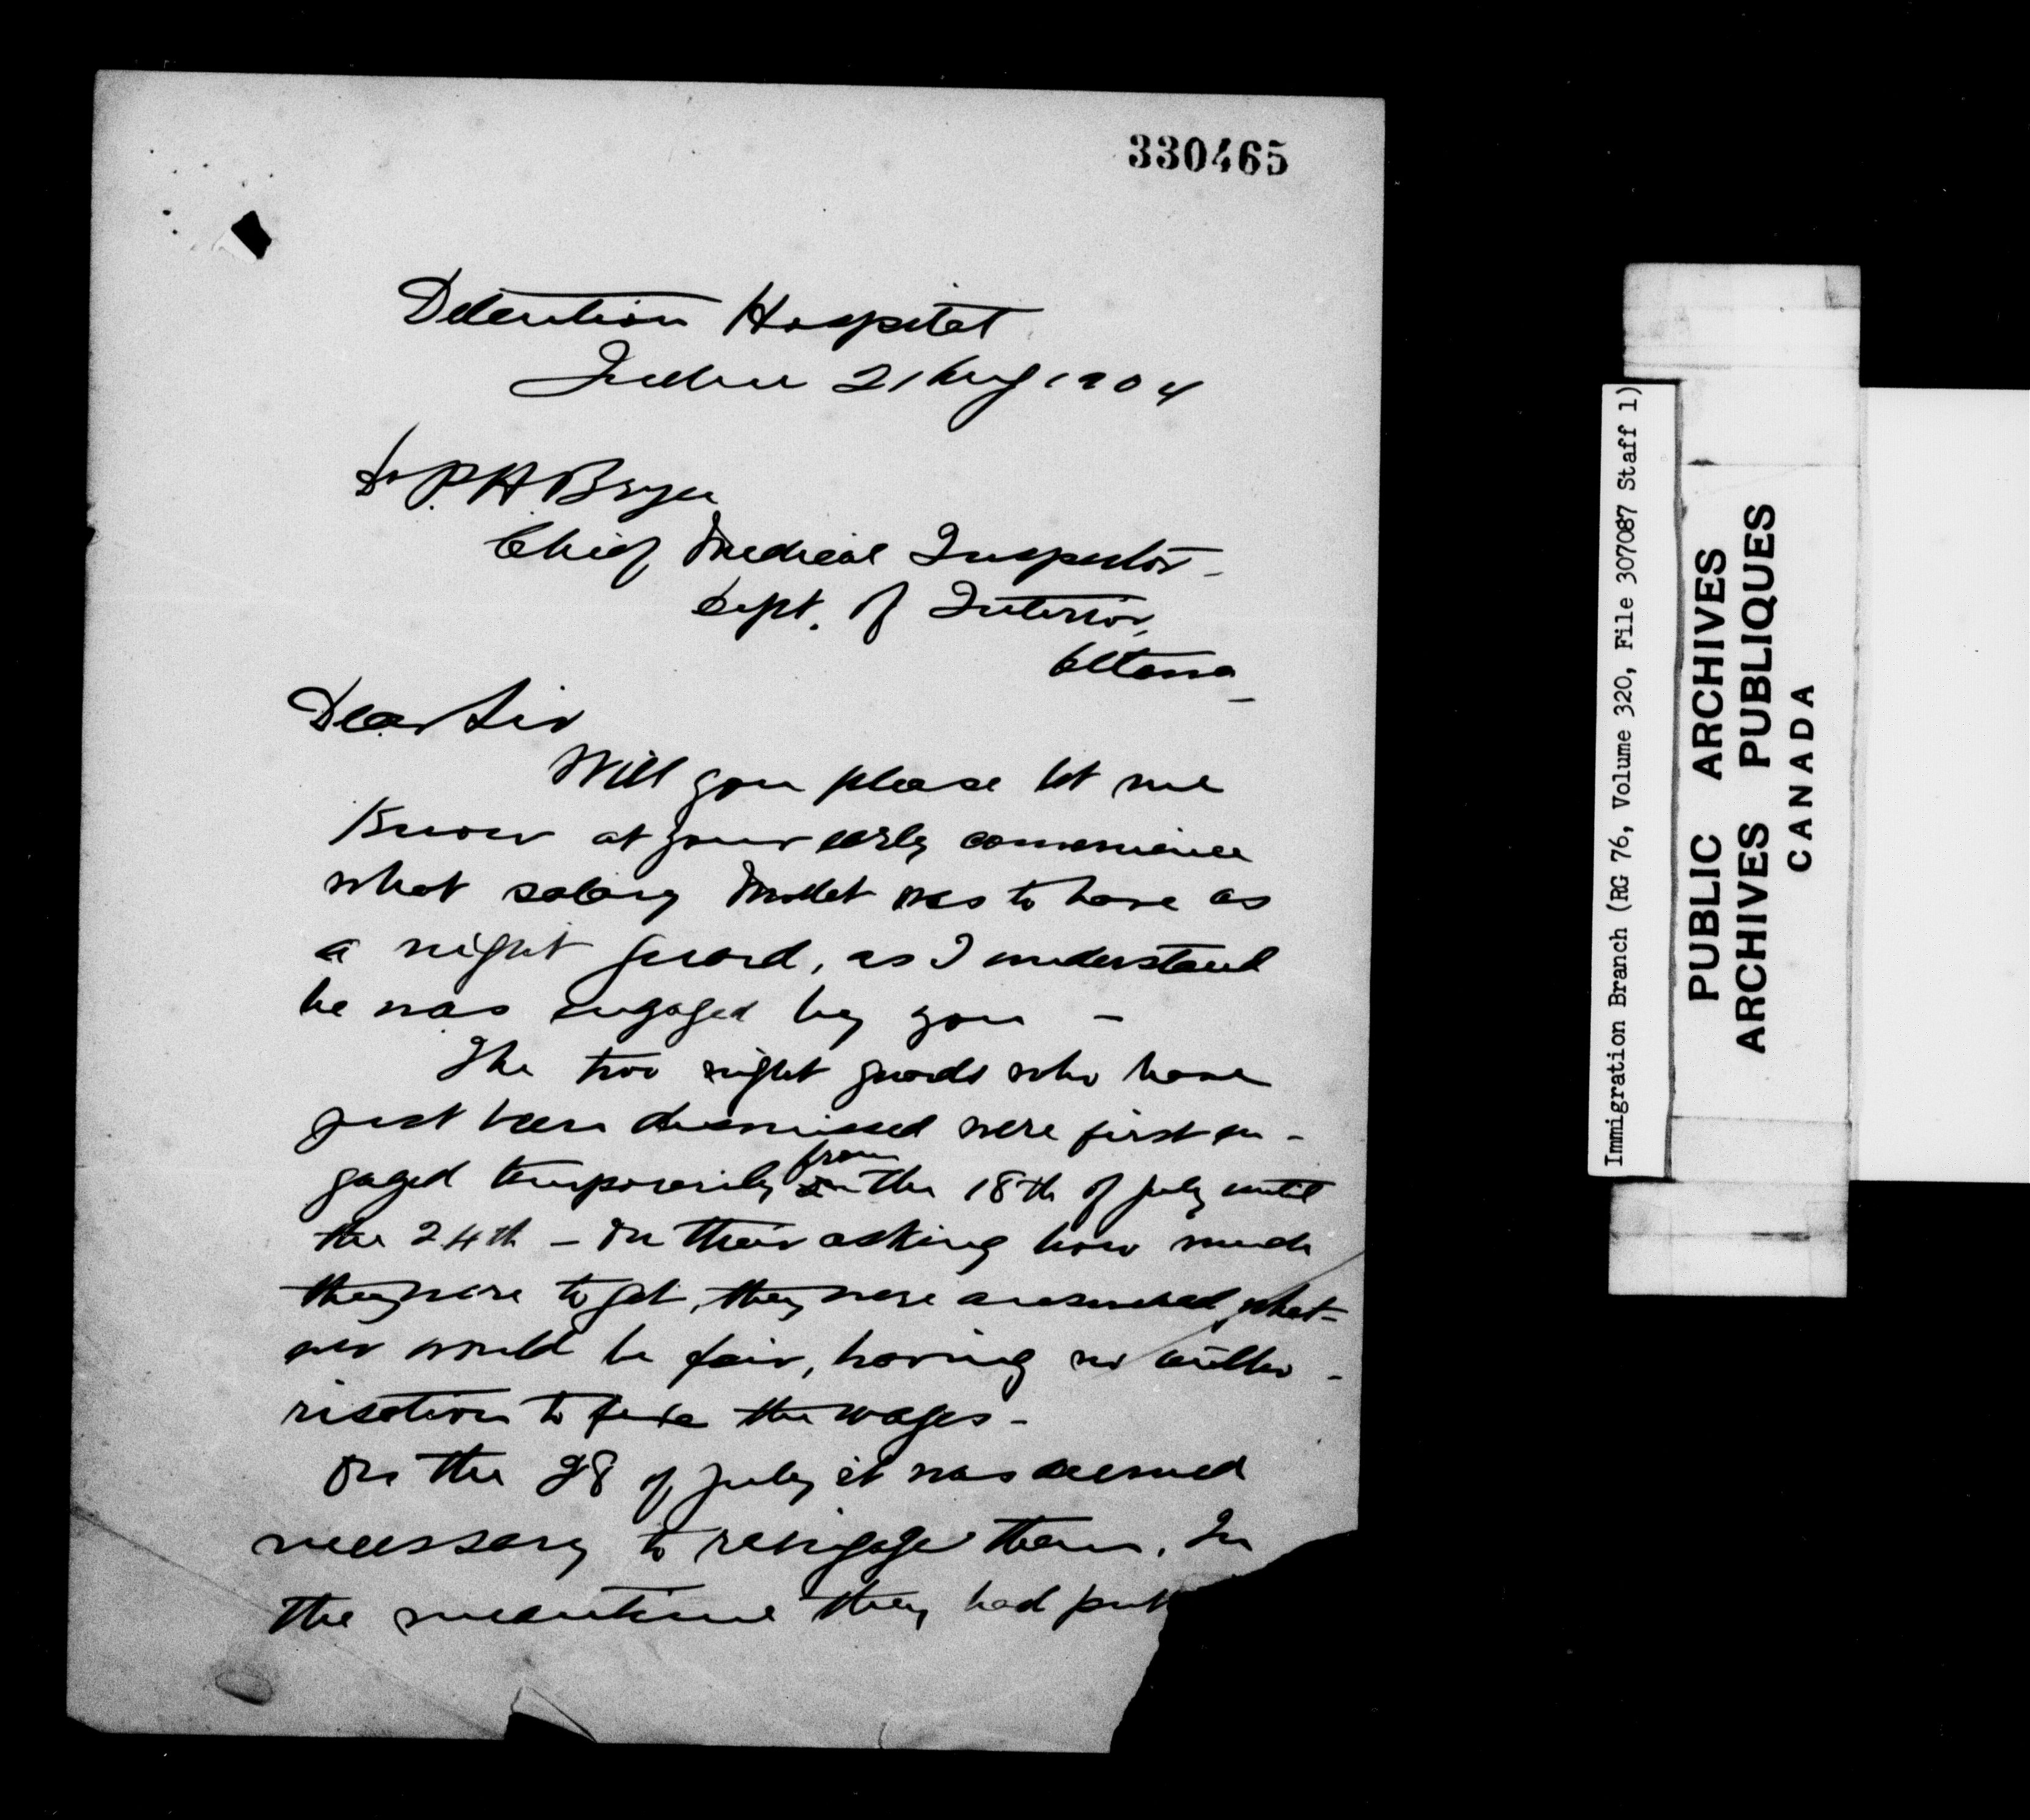 330465
Detention Hospital
Quebec 21 Aug 1904
Dr P. H. Bryce
Chief Medical Inspector -
Dept. of Interior,
Ottawa -
Dear Sir
Will you please let me
know at your early convenience
what salary Mollet was to have as
a night guard, as I understand
he was engaged by you -
The two night guards who have
just been dismissed were first en-
gaged temporarily from the 18th of July until
the 24th - On their asking how much
they were to get, they were answered, what-
ever would be fair, having no autho-
risation to fix the wages -
On the 28 of July it was deemed
necessary to reengage them. In
the meantime they had put
Immigration Branch (RG 76, Volume 320, File 307087 Staff 1)
PUBLIC ARCHIVES
ARCHIVES PUBLIQUES
CANADA